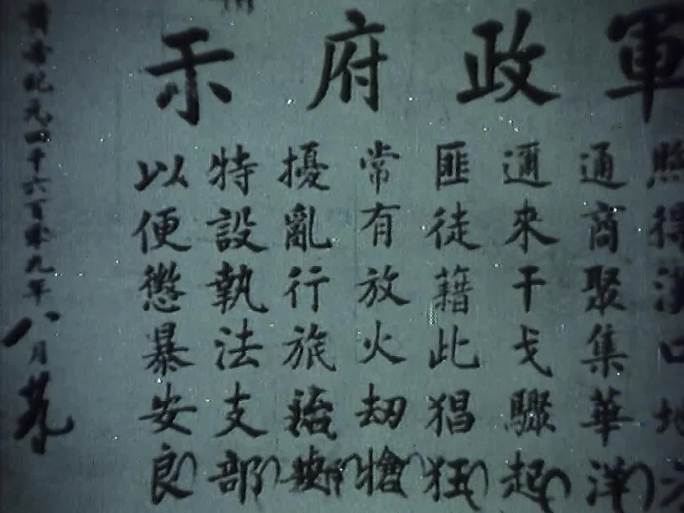 軍政府示
照得漢口地方
通商聚集華洋
邇來干戈驟起
匪徒藉此猖狂
常有放火刧搶
擾亂行旅治安
特設執法支部
以便懲暴安良
黃帝紀元四千六百零九年八月